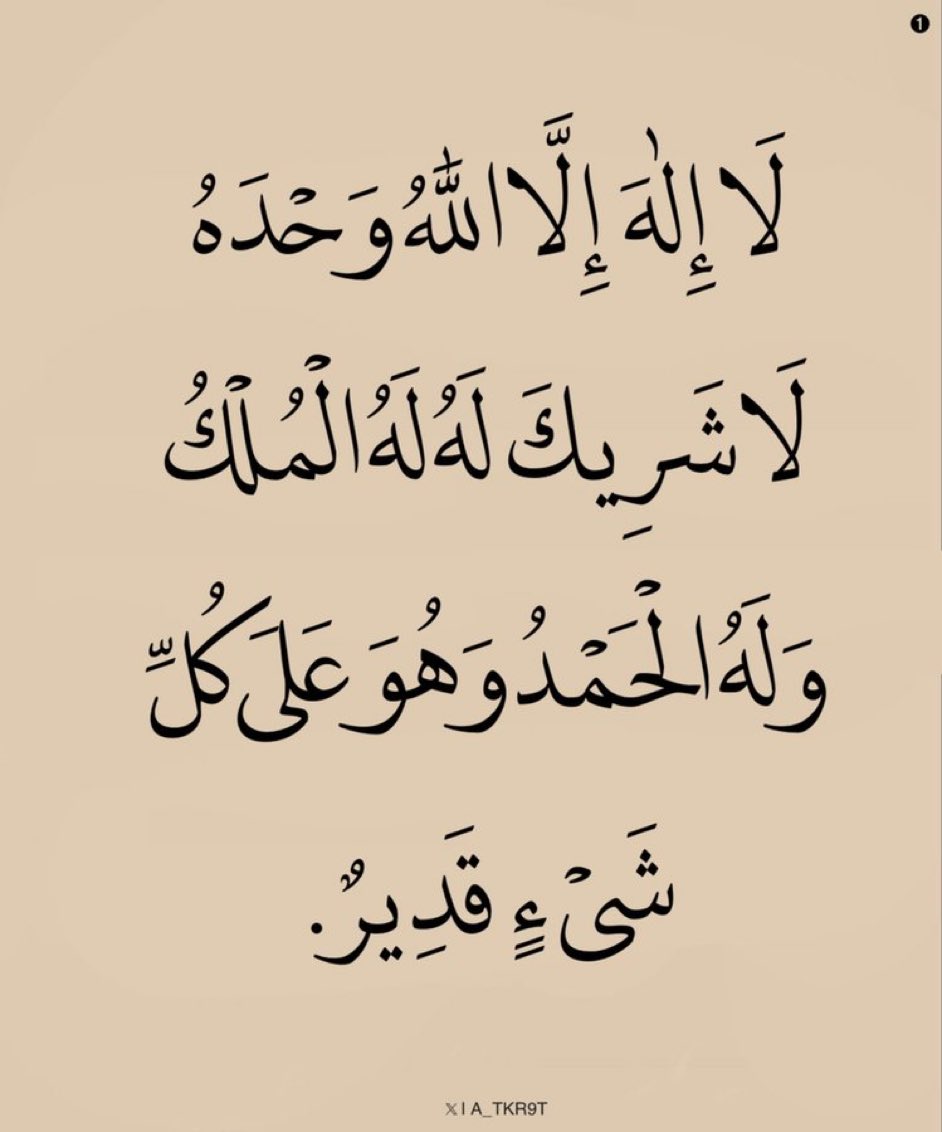 ❶
لَا إِلٰهَ إِلَّا اللّٰهُ وَحْدَهُ
لَا شَرِيكَ لَهُ لَهُ الْمُلْكُ
وَلَهُ الْحَمْدُ وَهُوَ عَلَىٰ كُلِّ
شَيْءٍ قَدِيرٌ.
𝕏 | A_TKR9T